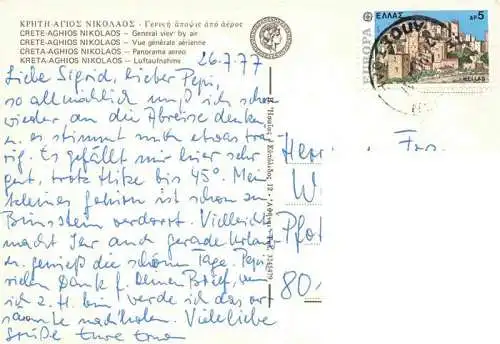 ΚΡΗΤΗ-ΑΓΙΟΣ ΝΙΚΟΛΑΟΣ - Γενική ἄποψις ἀπό ἀέρος
CRETE-AGHIOS NIKOLAOS – General view by air
CRETE-AGHIOS NIKOLAOS – Vue générale aérienne
CRETA-AGHIOS NIKOLAOS – Panorama aereo
KRETA-AGHIOS NIKOLAOS – Luftaufnahme
26.7.77
Liebe Sigrid, lieber Pepi,
so allmählich muß ich schon
wieder an die Abreise denken
u. es stimmt mich etwas trau
rig. Es gefällt mir hier sehr
gut, trotz Hitze bis 45°. Mein
kleines Gehirn ist schon zu
Bimsstein verdorrt. Vielleicht
macht Ihr auch gerade Urlaub
u. genießt die schönen Tage. Pepi
vielen Dank f. Deinen Brief, wenn
ich z. H. bin werde ich das
nachholen. Viele liebe
Grüße Eure Erna
EUROPA
ΕΛΛΑΣ
ΔΡ 5
HELLAS
Herr
Fr
W
Pfo
80